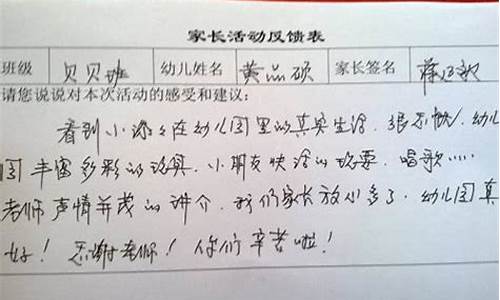 家长活动反馈表
班级 贝贝班 幼儿姓名 黄品硕 家长签名
请您说说对本次活动的感受和建议:
看到小孩在幼儿园里的真实生活,很
园丰富多彩的 小朋友快 唱歌……
老师声情并茂的讲介,我们家长放心多了,幼儿园真
好!感谢老师!你们辛苦啦!